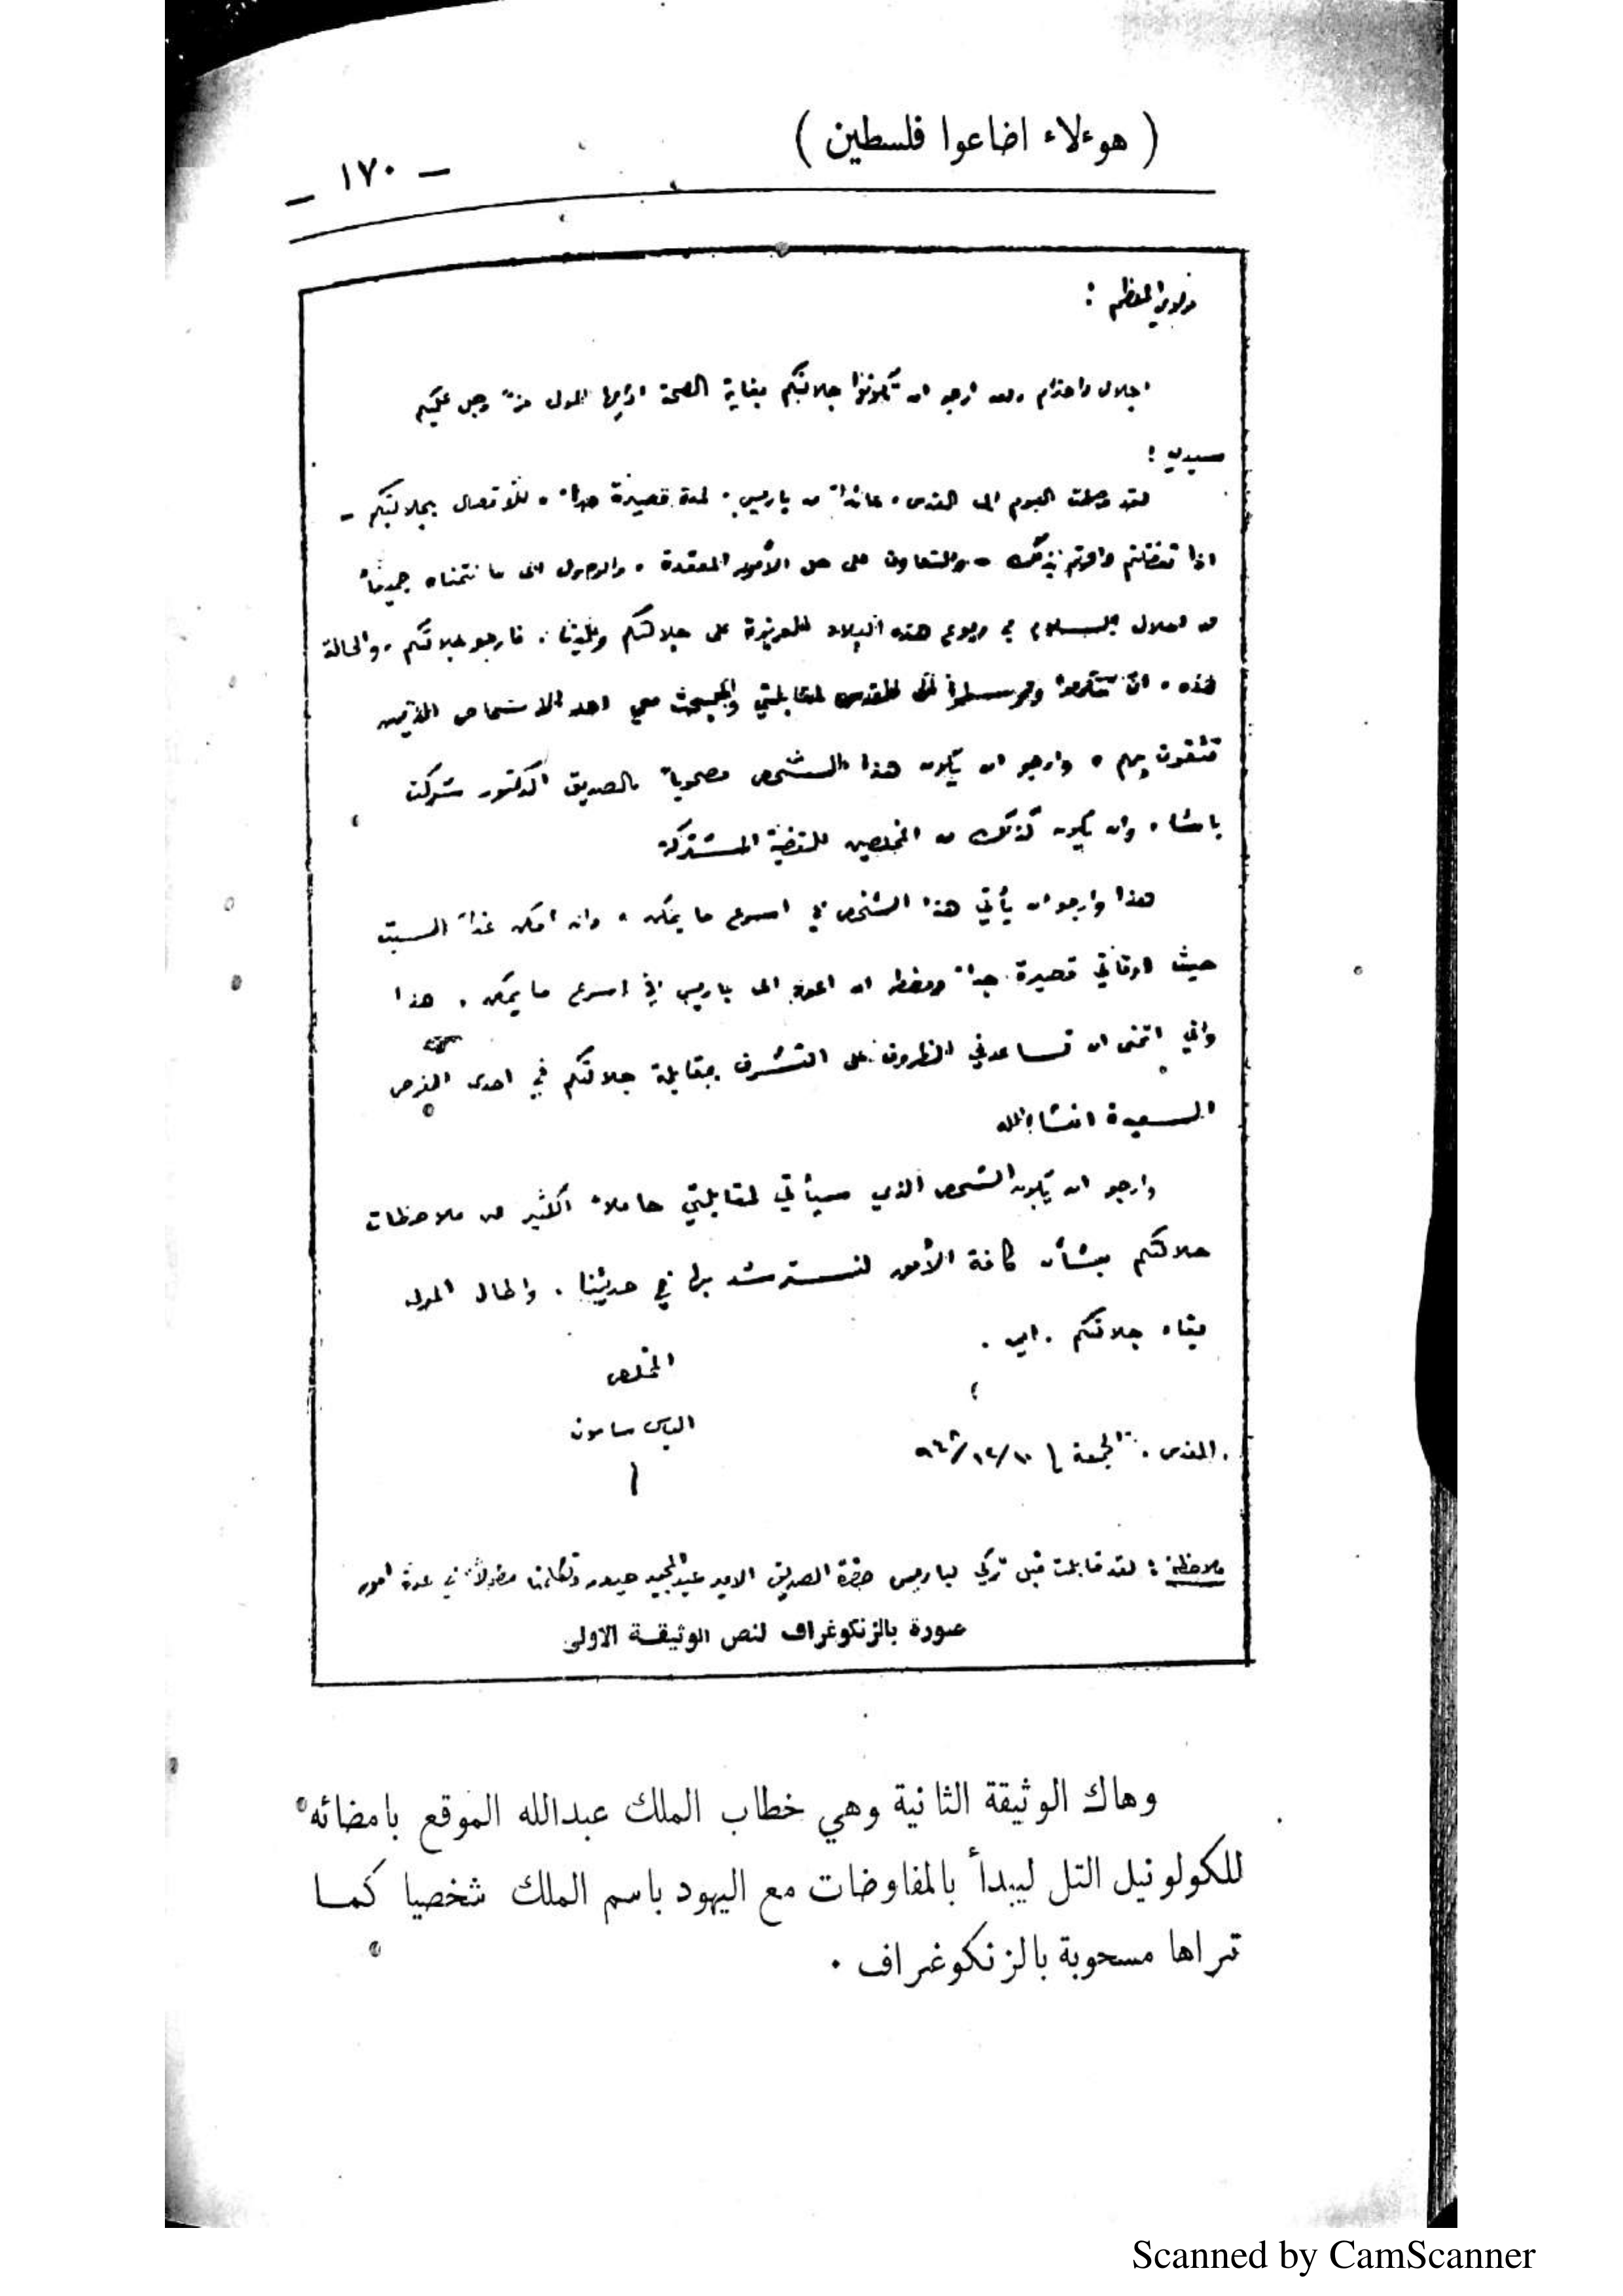 ( هوءلاء اضاعوا فلسطين )
– ١٧٠ –
مولاي المعظم :
اجلال واحترام وبعد ارجو ان تكونوا جلالتكم بغاية الصحة ادامها المولى عز وجل عليكم
سيدي :
لقد وصلت اليوم الى القدس ، عائداً من باريس ، لمدة قصيرة جداً ، للاتصال بجلالتكم –
اذا تفضلتم وامرتم بذلك – وللتعاون على حل الأمور المعقدة ، والوصول الى ما نتمناه جميعاً
من احلال السلام في ربوع هذه البلاد العزيزة على جلالتكم وعلينا . فارجو جلالتكم ، والحالة
هذه ، ان تتكرموا وترسلوا الى القدس لمقابلتي والبحث معي احد الاشخاص الذين
تثقون بهم ، وارجو ان يكون هذا الشخص مصحوباً بالصديق الدكتور شوكت
باشا ، وان يكون كذلك من المخلصين للقضية المشتركة
هذا وارجو ان يأتي هذا الشخص في اسرع ما يمكن ، وان امكن غداً السبت
حيث اوقاتي قصيرة جداً ومضطر ان اعود الى باريس في اسرع ما يمكن . هذا
واني اتمنى ان تساعدني الظروف على التشرف بمقابلة جلالتكم في احدى الفرص
السعيدة انشاالله
وارجو ان يكون الشخص الذي سيأتي لمقابلتي حاملاً الكثير من ملاحظات
جلالتكم بشأن كافة الأمور لنسترشد بها في حديثنا . واطال المولى
بقاء جلالتكم .
المخلص
الياس ساسون
القدس . الجمعة ١٠/١٢/٩٤٨
ملاحظة : لقد قابلت قبل تركي لباريس حضرة الصديق الامير عبدالمجيد حيدر وتكلمنا مطولاً في عدة امور
صورة بالزنكوغراف لنص الوثيقة الاولى
وهاك الوثيقة الثانية وهي خطاب الملك عبدالله الموقع بامضائه
للكولونيل التل ليبدأ بالمفاوضات مع اليهود باسم الملك شخصيا كما
تراها مسحوبة بالزنكوغراف .
Scanned by CamScanner